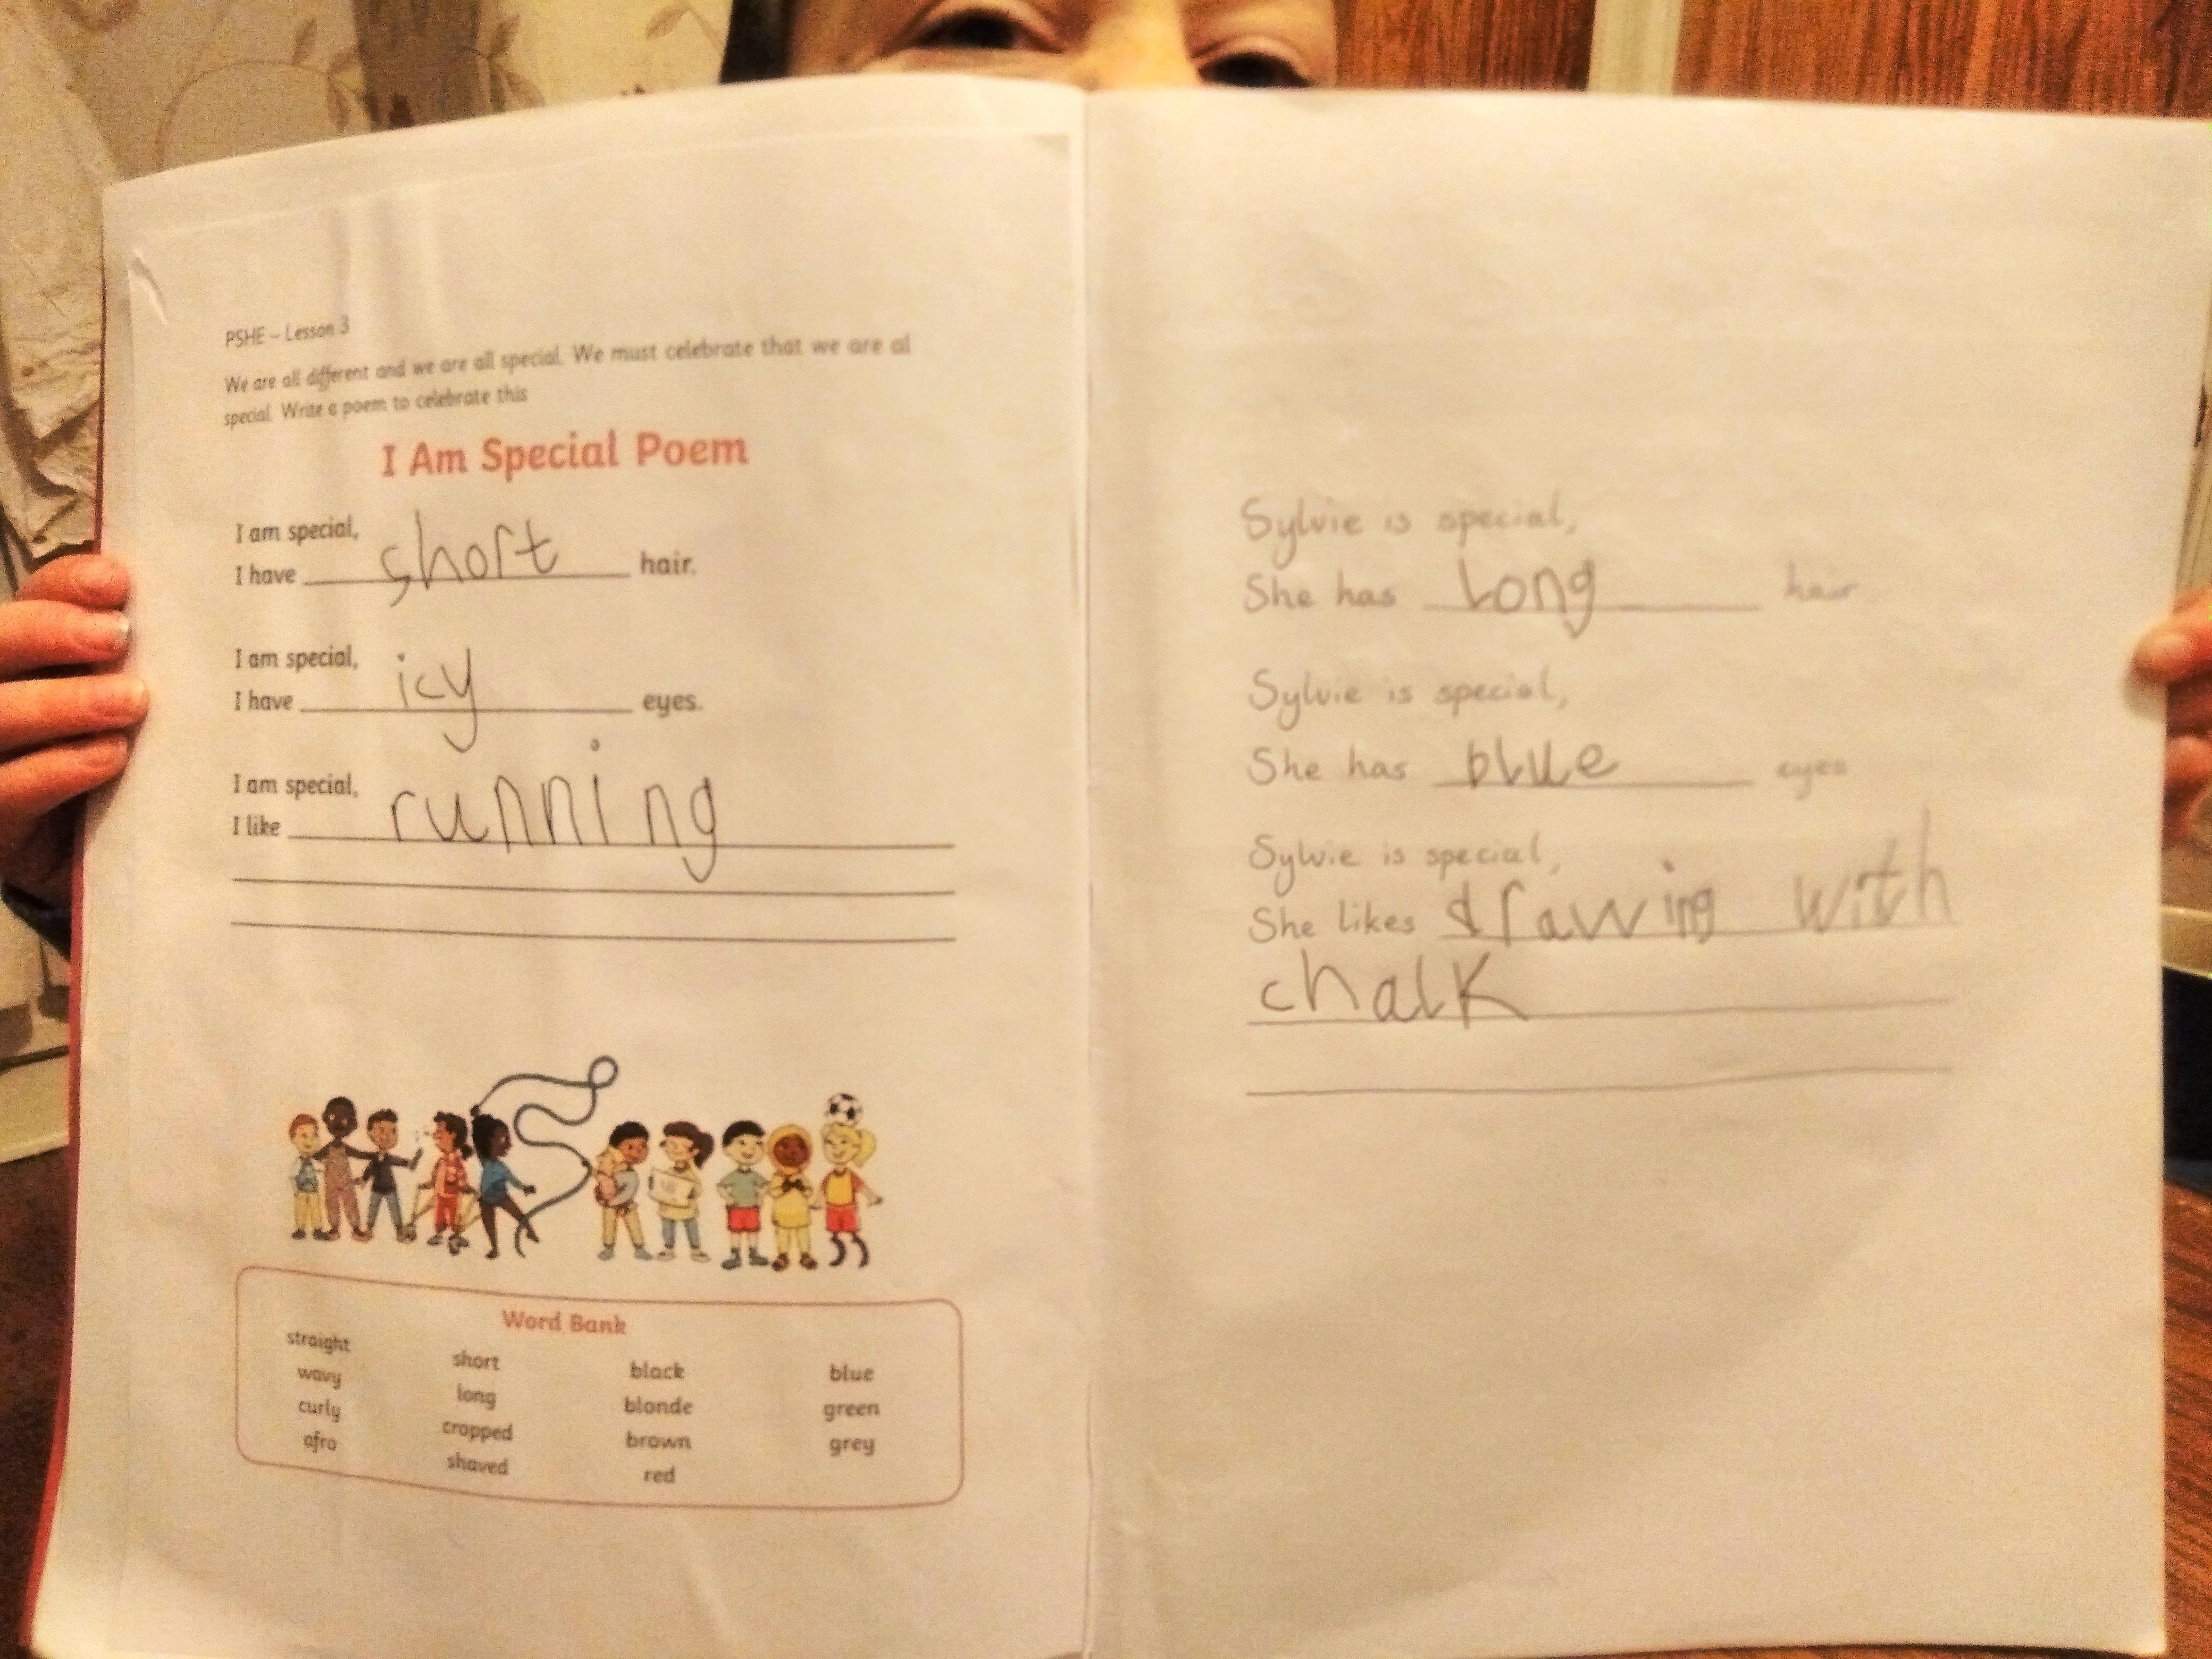 PSHE – Lesson 3
We are all different and we are all special. We must celebrate that we are al
special. Write a poem to celebrate this
I Am Special Poem
I am special,
I have short hair.
I am special,
I have icy eyes.
I am special,
I like running
Word Bank
straight short black blue
wavy long blonde green
curly cropped brown grey
afro shaved red
Sylvie is special,
She has long hair
Sylvie is special,
She has blue eyes
Sylvie is special,
She likes drawing with
chalk